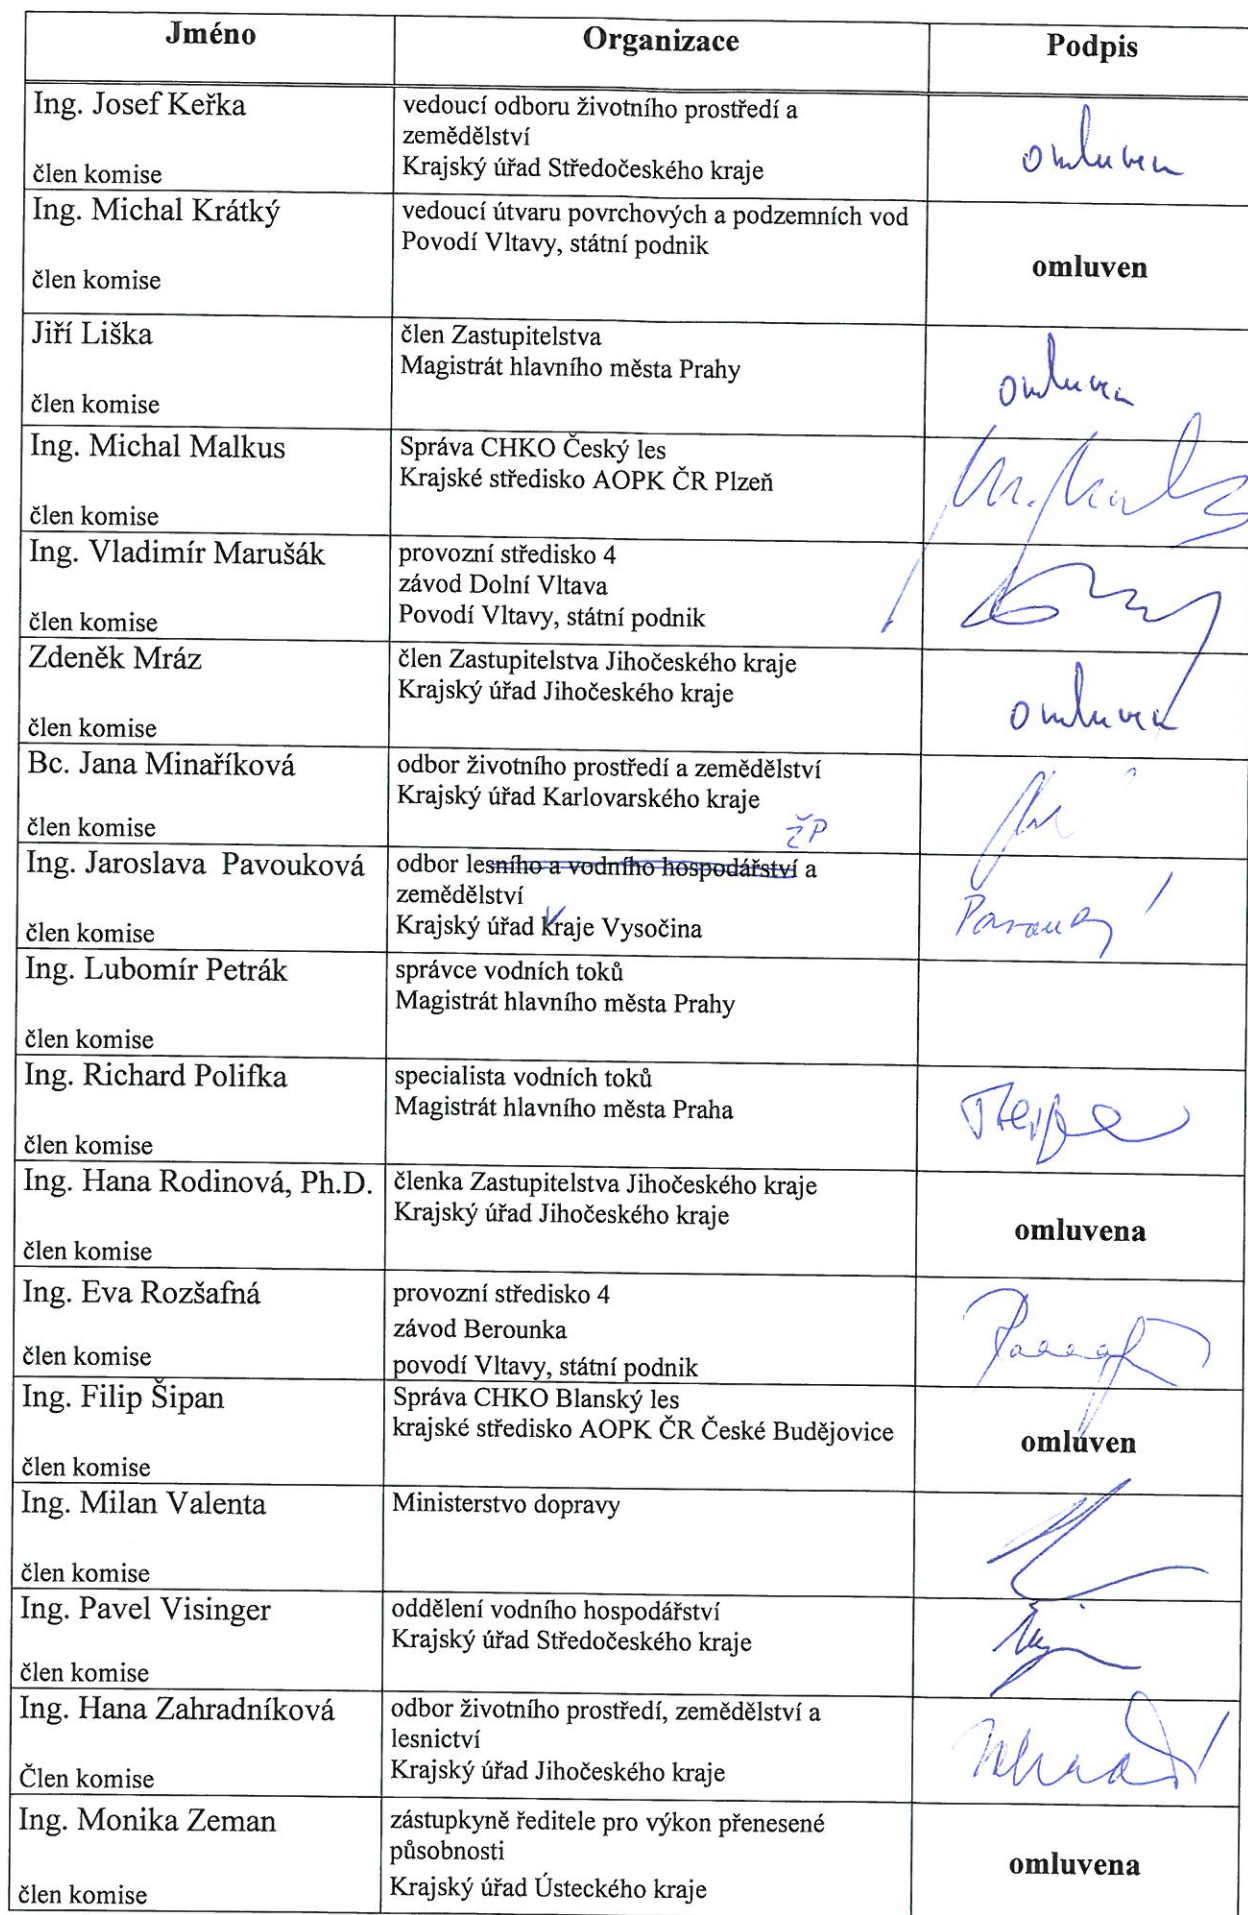 Jméno Organizace Podpis
Ing. Josef Keřka
člen komise
vedoucí odboru životního prostředí a
zemědělství
Krajský úřad Středočeského kraje
omluven
Ing. Michal Krátký
člen komise
vedoucí útvaru povrchových a podzemních vod
Povodí Vltavy, státní podnik
omluven
Jiří Liška
člen komise
člen Zastupitelstva
Magistrát hlavního města Prahy
omluven
Ing. Michal Malkus
člen komise
Správa CHKO Český les
Krajské středisko AOPK ČR Plzeň
Ing. Vladimír Marušák
člen komise
provozní středisko 4
závod Dolní Vltava
Povodí Vltavy, státní podnik
Zdeněk Mráz
člen komise
člen Zastupitelstva Jihočeského kraje
Krajský úřad Jihočeského kraje
omluven
Bc. Jana Minaříková
člen komise
odbor životního prostředí a zemědělství
Krajský úřad Karlovarského kraje
ŽP
Ing. Jaroslava Pavouková
člen komise
odbor lesního a vodního hospodářství a
zemědělství
Krajský úřad kraje Vysočina
Ing. Lubomír Petrák
člen komise
správce vodních toků
Magistrát hlavního města Prahy
Ing. Richard Polifka
člen komise
specialista vodních toků
Magistrát hlavního města Praha
Ing. Hana Rodinová, Ph.D.
člen komise
členka Zastupitelstva Jihočeského kraje
Krajský úřad Jihočeského kraje
omluvena
Ing. Eva Rozšafná
člen komise
provozní středisko 4
závod Berounka
povodí Vltavy, státní podnik
Ing. Filip Šipan
člen komise
Správa CHKO Blanský les
krajské středisko AOPK ČR České Budějovice
omluven
Ing. Milan Valenta
člen komise
Ministerstvo dopravy
Ing. Pavel Visinger
člen komise
oddělení vodního hospodářství
Krajský úřad Středočeského kraje
Ing. Hana Zahradníková
Člen komise
odbor životního prostředí, zemědělství a
lesnictví
Krajský úřad Jihočeského kraje
Ing. Monika Zeman
člen komise
zástupkyně ředitele pro výkon přenesené
působnosti
Krajský úřad Ústeckého kraje
omluvena